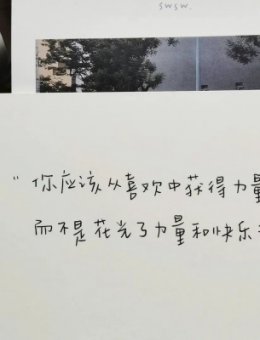 swsw.
"你应该从喜欢中获得力量
而不是花光了力量和快乐